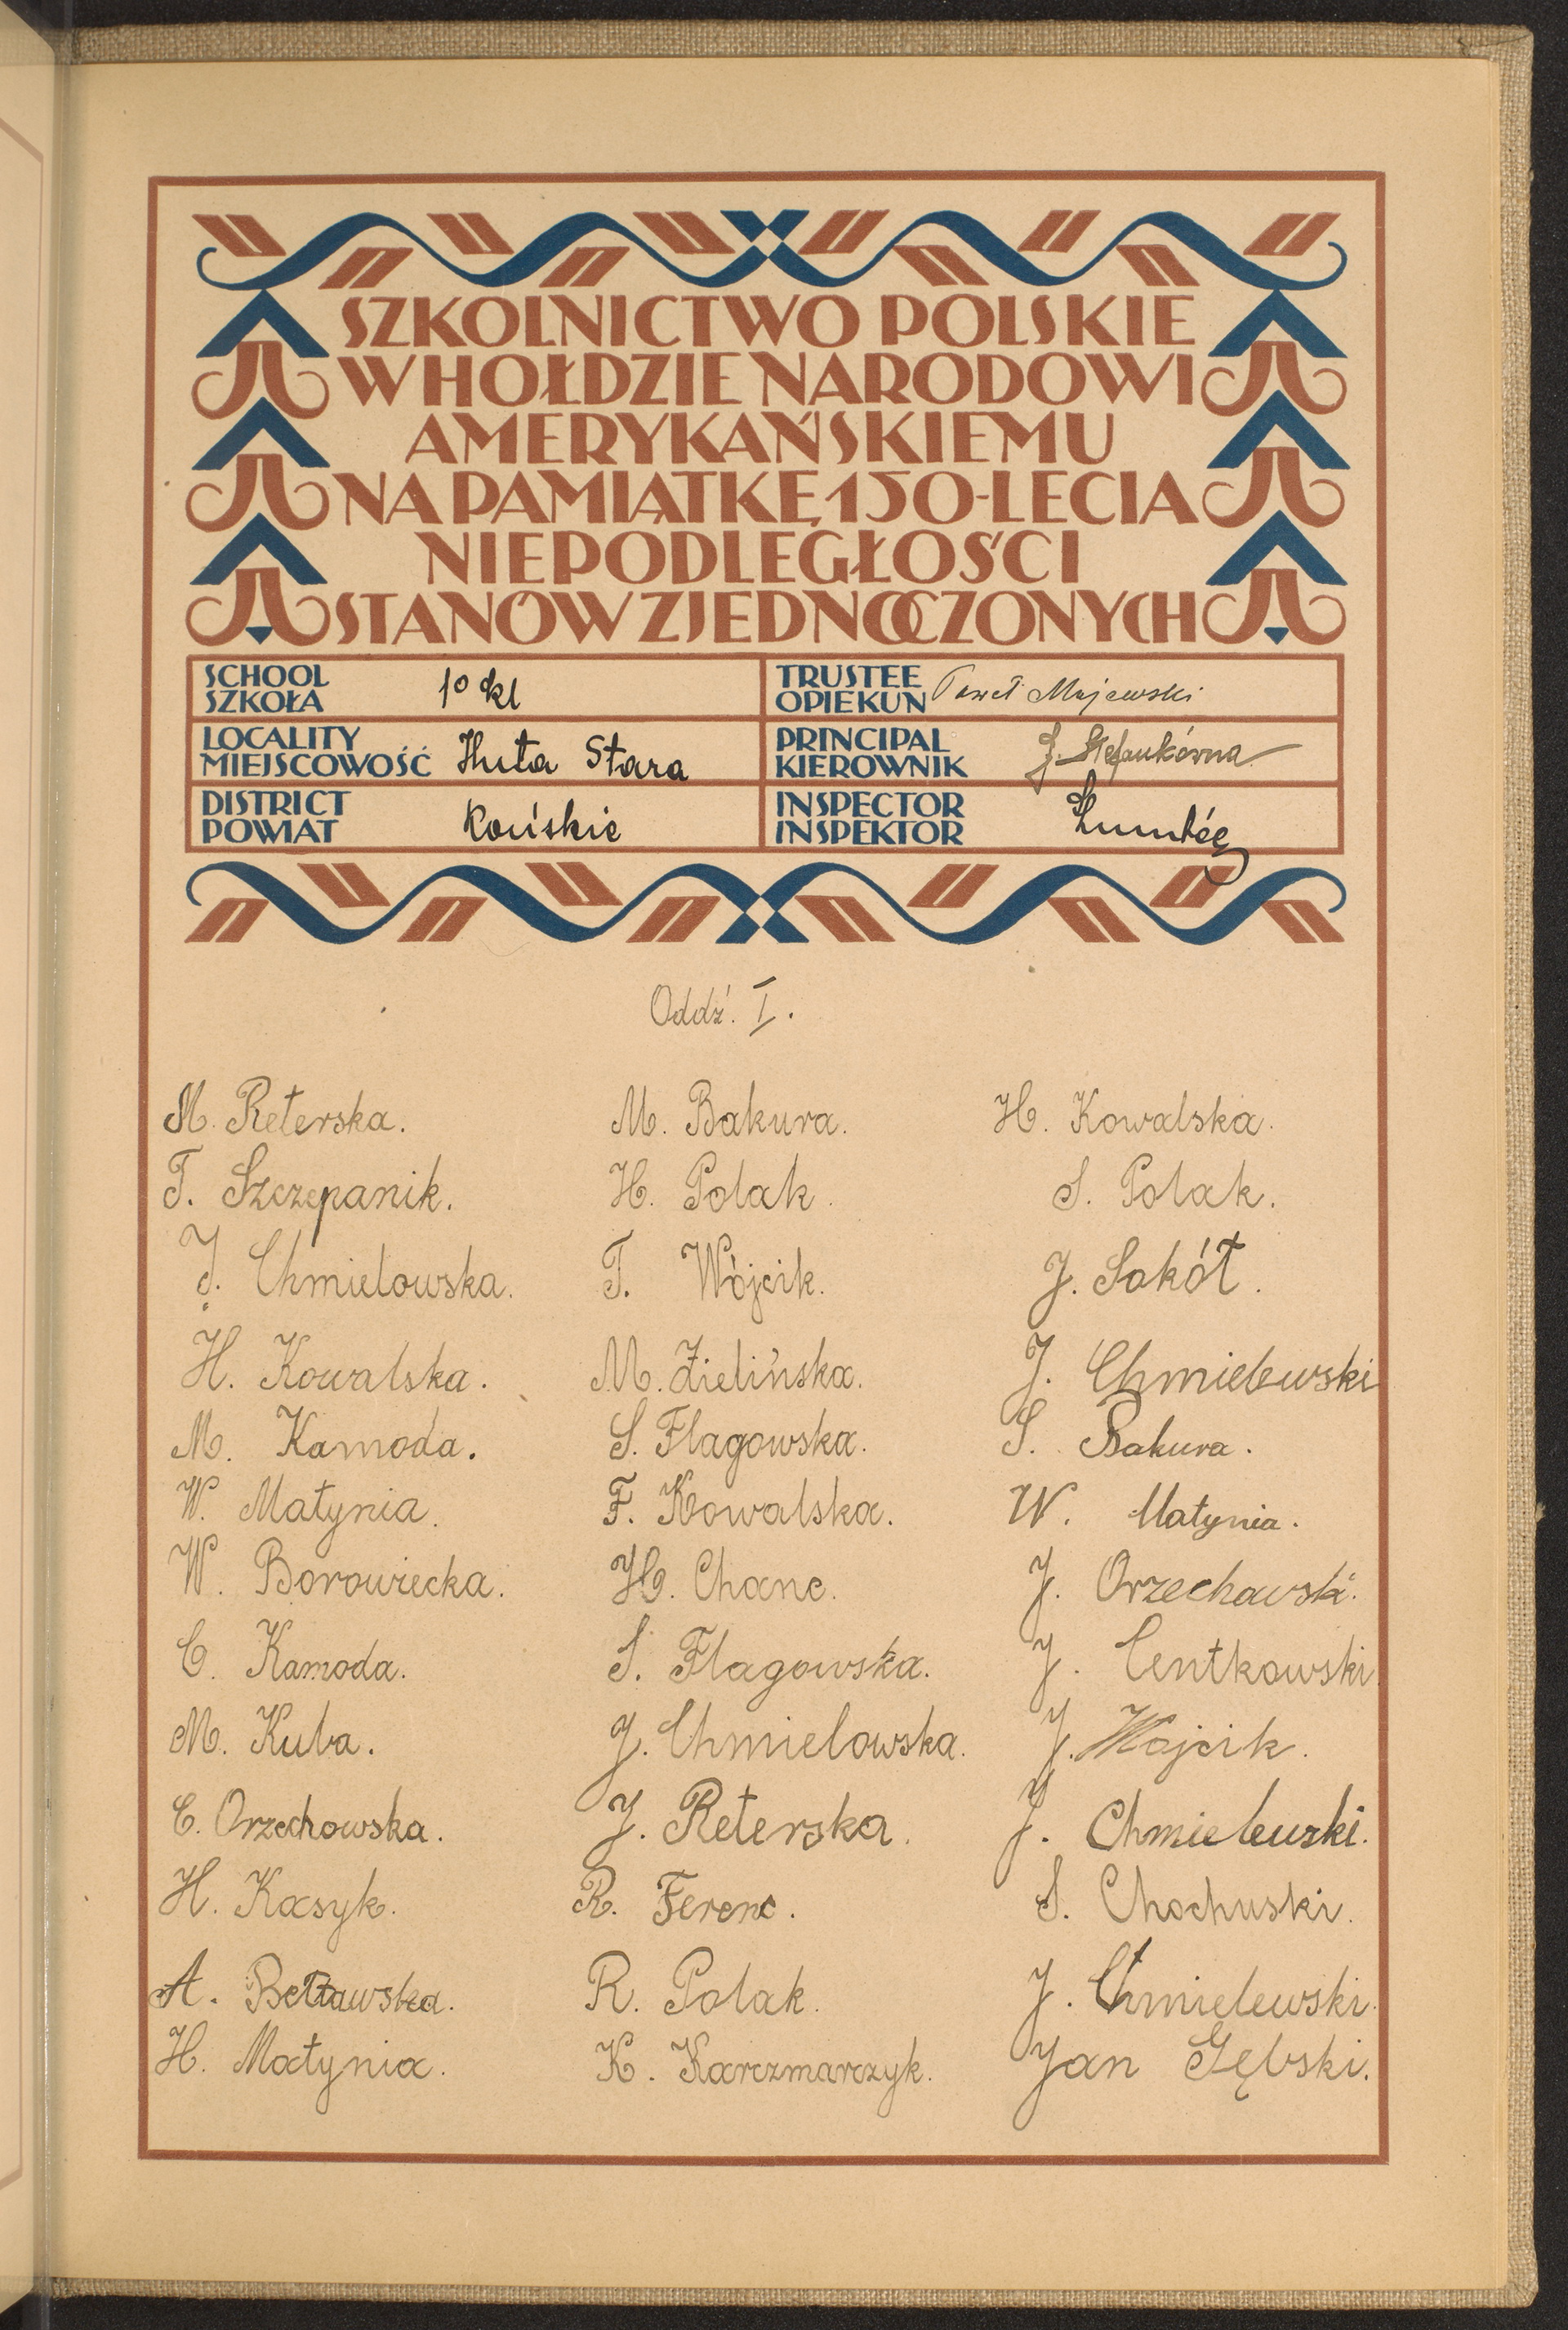 SZKOLNICTWO POLSKIE
W HOŁDZIE NARODOWI
AMERYKAŃSKIEMU
NA PAMIĄTKĘ 150-LECIA
NIEPODLEGŁOŚCI
STANÓW ZJEDNOCZONYCH
SCHOOL
SZKOŁA
1º kl
TRUSTEE
OPIEKUN
Paweł Majewski
LOCALITY
MIEJSCOWOŚĆ
Huta Stara
PRINCIPAL
KIEROWNIK
J. Stefankówna
DISTRICT
POWIAT
Końskie
INSPECTOR
INSPEKTOR
Oddź. I.
M. Reterska.
T. Szczepanik.
J. Chmielowska.
H. Kowalska.
M. Kamoda.
W. Matynia.
W. Borowiecka.
C. Kamoda.
M. Kuba.
C. Orzechowska.
H. Kasyk.
A. Bełtawska.
H. Matynia.
M. Bakura.
H. Polak.
T. Wójcik.
M. Zielińska.
S. Flagowska.
F. Kowalska.
H. Chanc.
S. Flagowska.
J. Chmielowska.
J. Reterska.
R. Ferenc.
R. Polak.
K. Karczmarczyk.
H. Kowalska.
S. Polak.
J. Sokół.
J. Chmielewski
S. Bakura.
W. Matynia.
J. Orzechowski.
J. Centkowski
J. Wojcik.
J. Chmielewski.
S. Chochuski.
J. Chmielewski.
Jan Gębski.